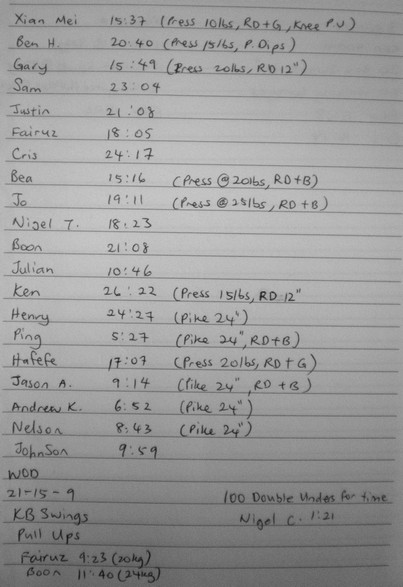 Xian Mei 15:37 (Press 10lbs, RD+G, Knee PU)
Ben H. 20:40 (Press 15lbs, P. Dips)
Gary 15:49 (Press 20lbs, RD 12")
Sam 23:04
Justin 21:08
Fairuz 18:05
Cris 24:17
Bea 15:16 (Press @ 20lbs, RD+B)
Jo 19:11 (Press @ 25lbs, RD+B)
Nigel T. 18:23
Boon 21:08
Julian 10:46
Ken 26:22 (Press 15lbs, RD 12"
Henry 24:27 (Pike 24")
Ping 5:27 (Pike 24", RD+B)
Hafefe 17:07 (Press 20lbs, RD+G)
Jason A. 9:14 (Pike 24", RD+B)
Andrew K. 6:52 (Pike 24")
Nelson 8:43 (Pike 24")
JohnSon 9:59
WOD
21-15-9
KB Swings
Pull Ups
Fairuz 9:23 (20kg)
Boon 11:40 (24kg)
100 Double Undes for time
Nigel C. 1:21